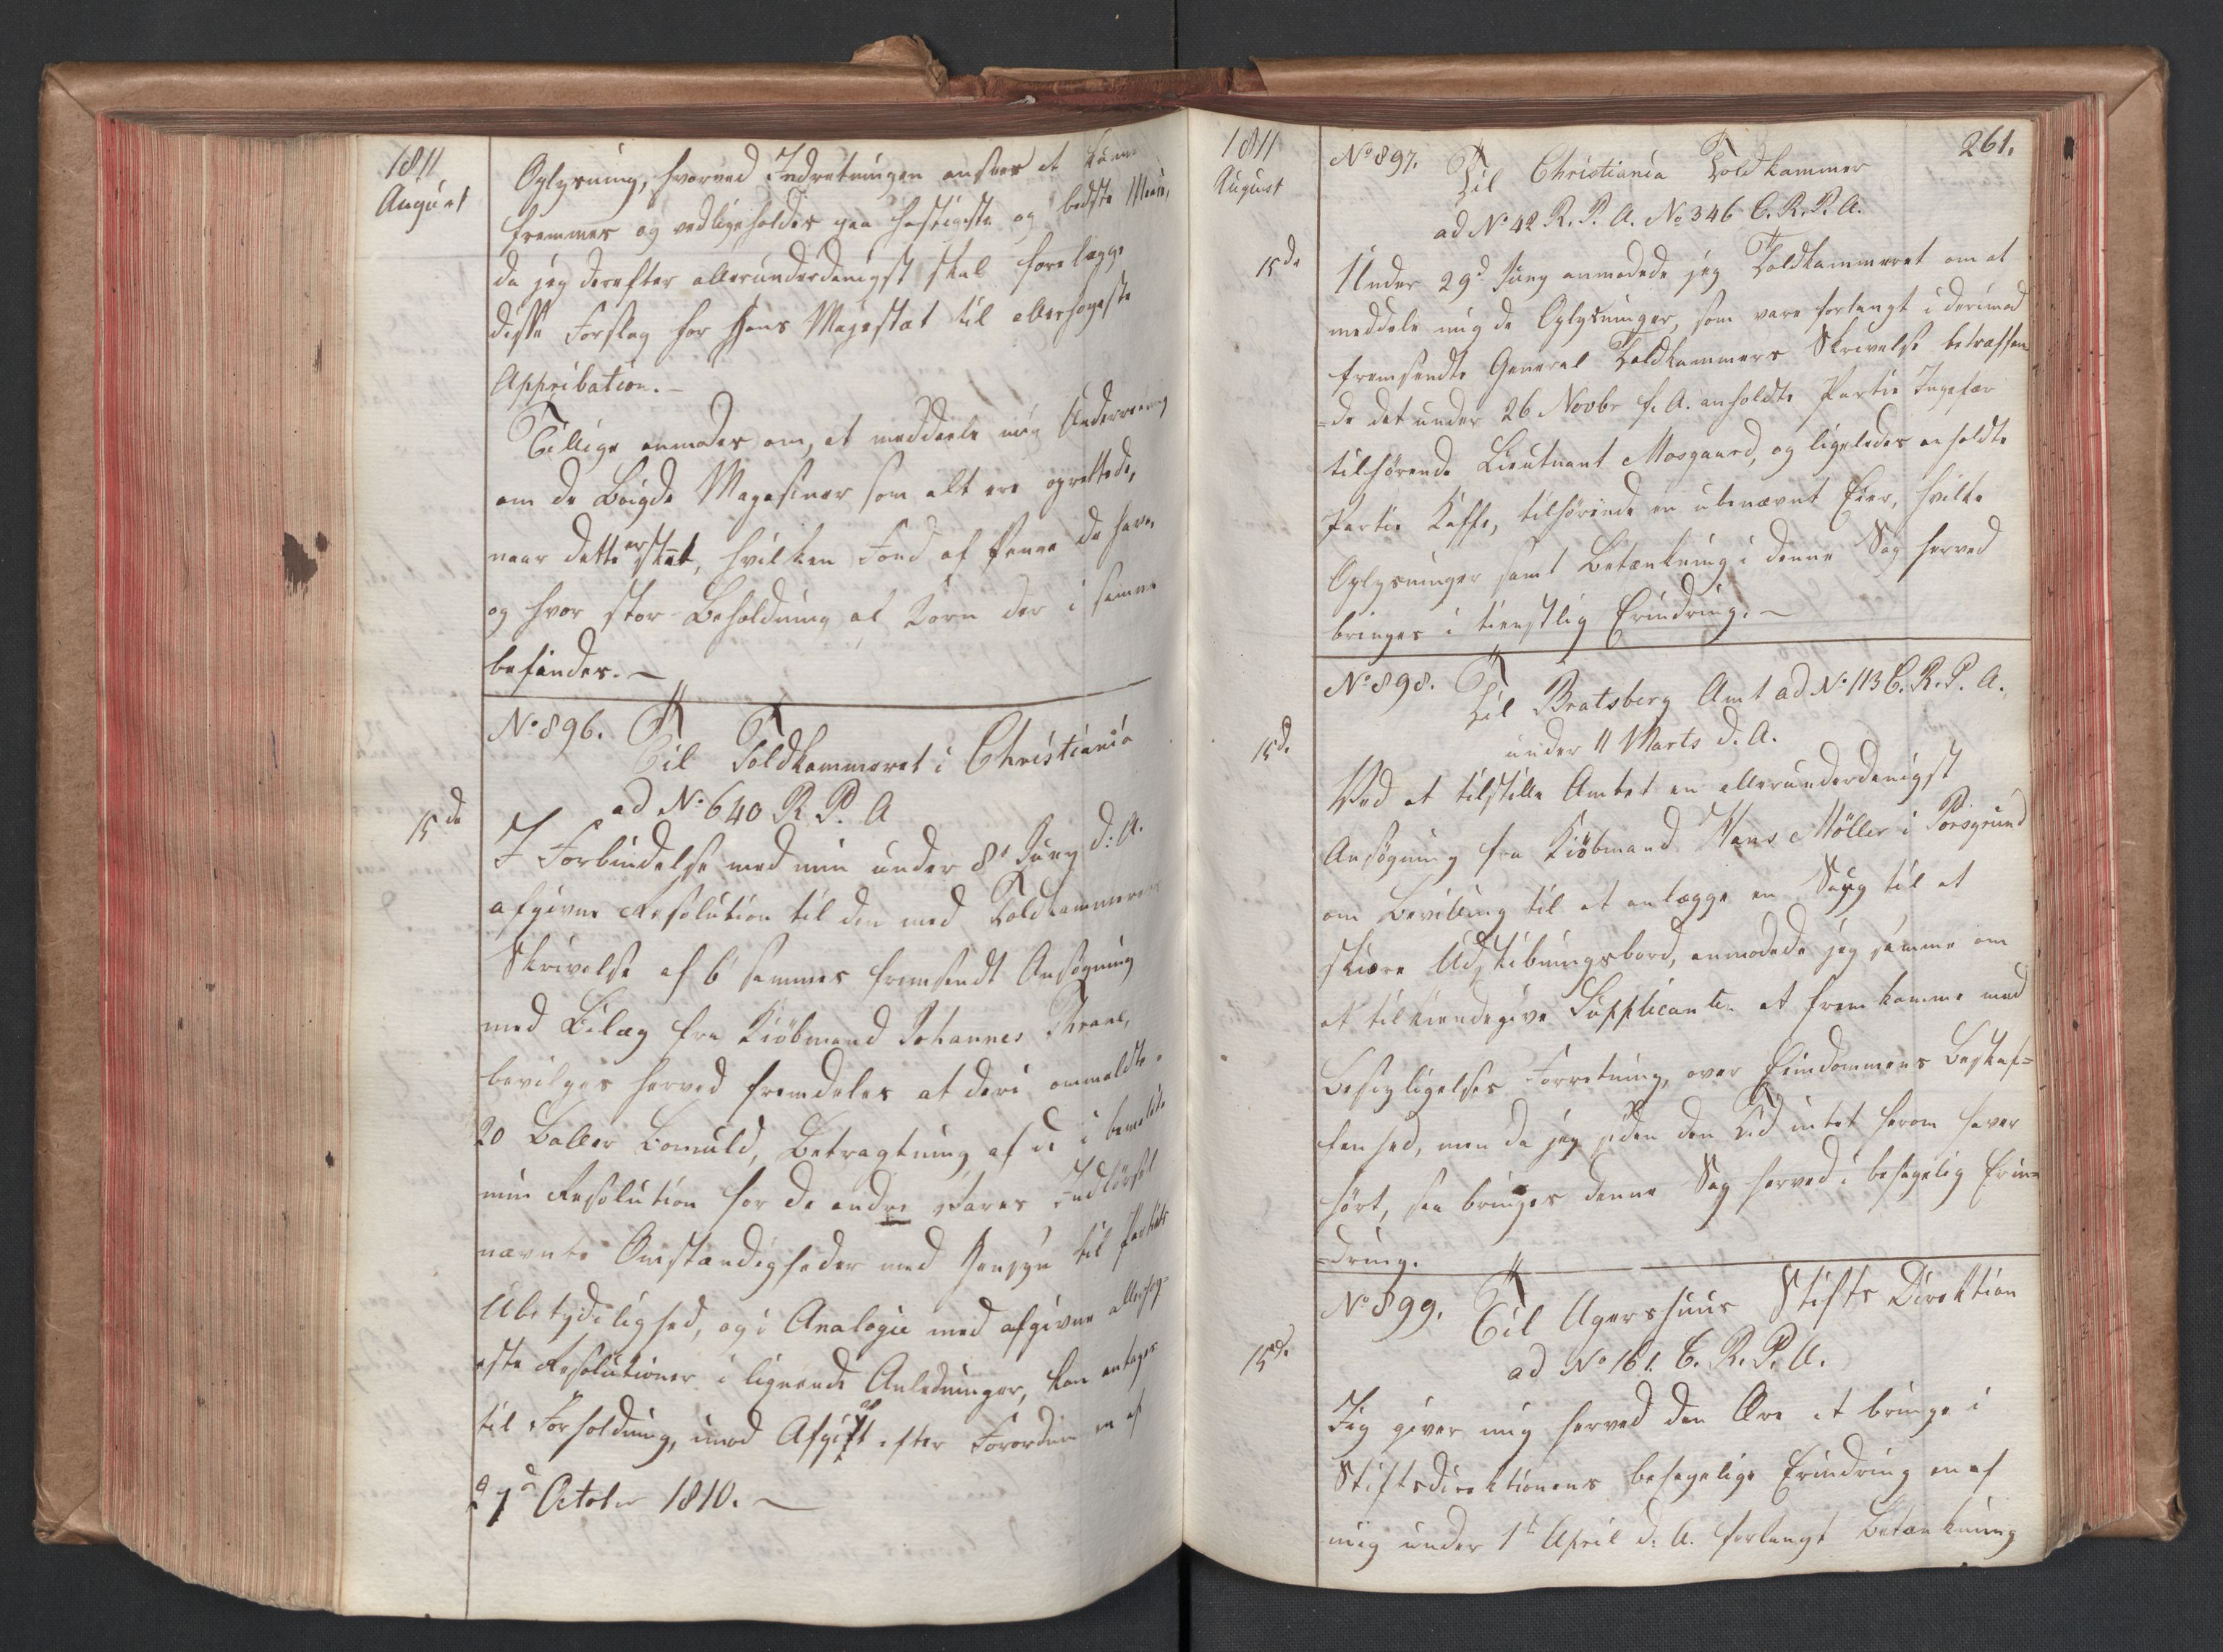 1811
August
Oplysning, hvorved Indretningen ansees at kunne
fremmes og vedligeholdes paa hastigste og bedste Maade,
da jeg derefter allerunderdanigst skal forelægge
disse Forslag for Hans Majestæt til allerhøieste
Approbation.-
Tillige anmodes om, at meddeele mig Underretning
om de Bøigde Magasiner som alt ere oprettede,
naar dette er skeet, hvilken Fond af Penge de have,
og hvor stor Beholdning af Korn der i samme
befindes.-
No 896. Til Toldkammeret i Christiania
ad No 640 R. P. A
15de
I Forbindelse med min under 8d Juny d: A.
afgivne Resolution til den med Toldkammerets
Skrivelse af 6 sammes fremsendt Ansøgning
med Bilag fra Kiöbmand Johannes Thrane,
bevilges herved fremdeles at deri anmeldte
20 Baller Bomuld, Betragtning af de i bemeldte
min Resolution for de andre Vares Indførsel
nævnte Omstændigheder med Hensyn til Partiets
Ubetydelighed, og i Analogie med afgivne allerhøi-
este Resolutioner i lignende Anledninger, kan antages
til Forholdning, imod Afgift efter Forordningen af
d 1d October 1810.-
1811
August
261.
No 897. Til Christiania Toldkammer
ad No 42 R. P. A. No 346 C. R. P. A.
15de
Under 29d Juny anmodede jeg Toldkammeret om at
meddele mig de Oplysninger, som vare forlangt i derimod
fremsendte General Toldkammers Skrivelse betræffen-
=de det under 26 Novbr f. A. anholdte Partie Ingefær
tilhørende Lieutnant Mosgaard, og ligeledes anholdte
Partie Kaffe, tilhørende en ubenævnt Eier, hvilke
Oplysninger samt Betænkning i denne Sag herved
bringes i tienstlig Erindring.-
No 898. Til Bratsberg Amt ad No 113 C. R. P. A.
under 11 Marts d. A.
15d.
Ved at tilstille Amtet en allerunderdanigst
Ansøgning fra Kiöbmand Hans Möller i Porsgrund
om Bevilling til at anlægge en Saug til at
skiære Udskibningsbord, anmodede jeg samme om
at tilkiendegive Supplicanten at fremkomme med
Besigtigelses Forretning, over Eiendommens Beskaf=
fenhed, men da jeg siden den Tid intet herom haver
hört, saa bringes denne Sag herved i behagelig Erin-
=dring.
No 899. Til Agershuus Stifts Direktion
ad No 161. C. R. P. A.
15d.
Jeg giver mig herved den Ære at bringe i
Stiftsdirektionens behagelige Erindring en af
mig under 1d April d. A. forlangt Betænkning